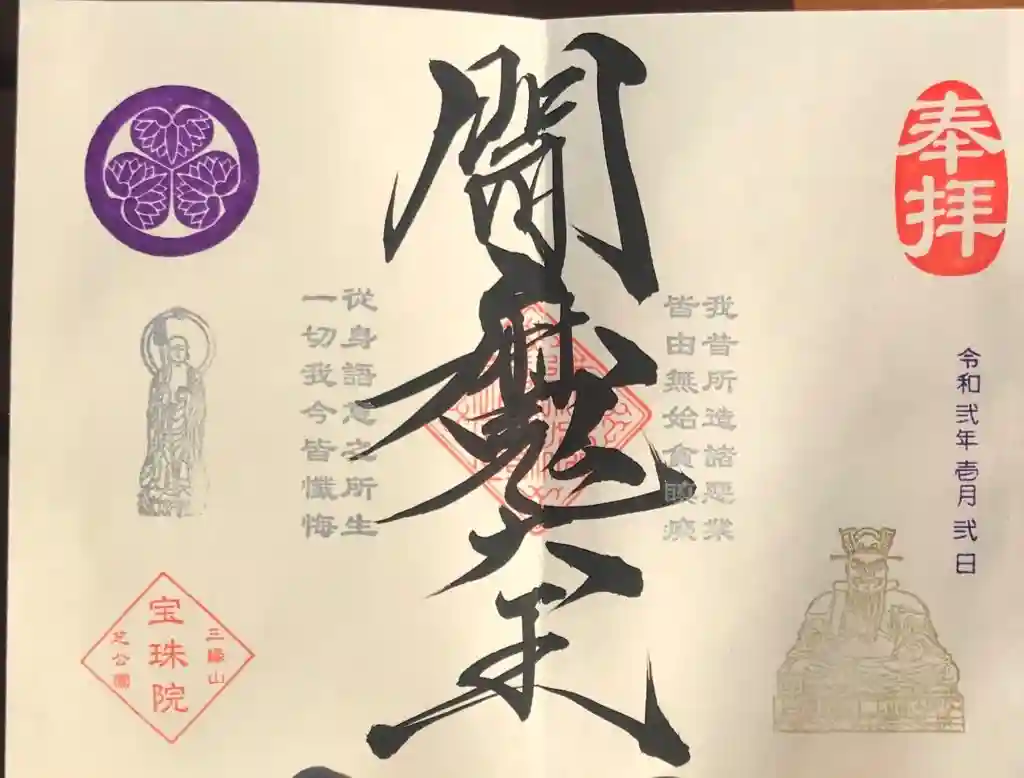 奉拝
令和弐年壱月弐日
我昔所造諸悪業
皆由無始貪瞋癡
閻魔大王
從身語意之所生
一切我今皆懺悔
三縁山
宝珠院
芝公園